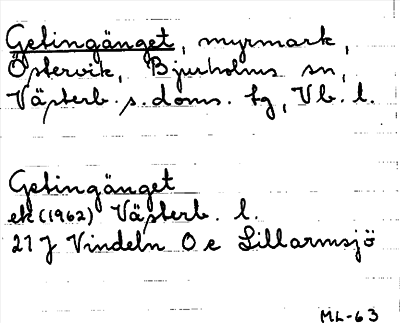 Getingänget, myrmark,
Östervik, Bjurholms sn,
Västerb. s. doms. tg, Vb. l.
Getingänget
ek (1962) Västerb. l.
21 J Vindeln 0 e Lillarmsjö
ML-63